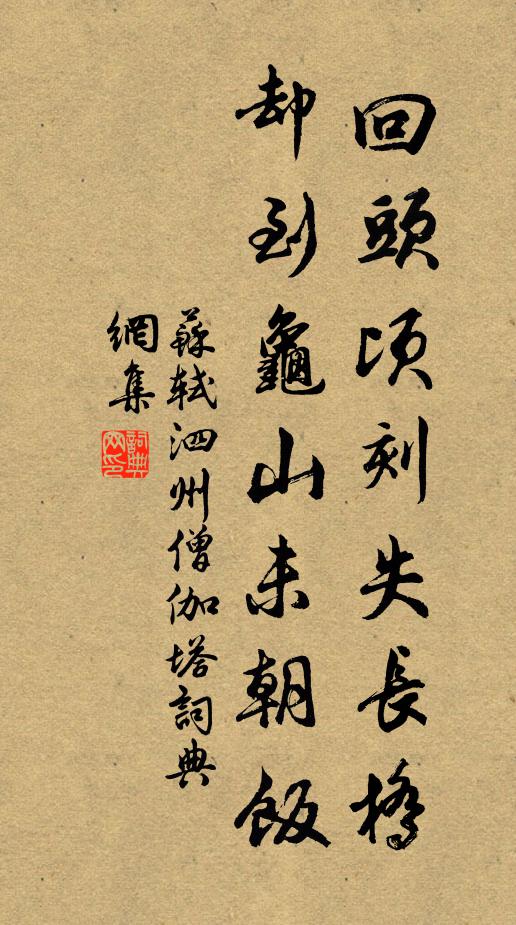 回頭頃刻失長橋
却到龜山未朝飯
蘇軾泗州僧伽塔詞典
網集
詞典網印